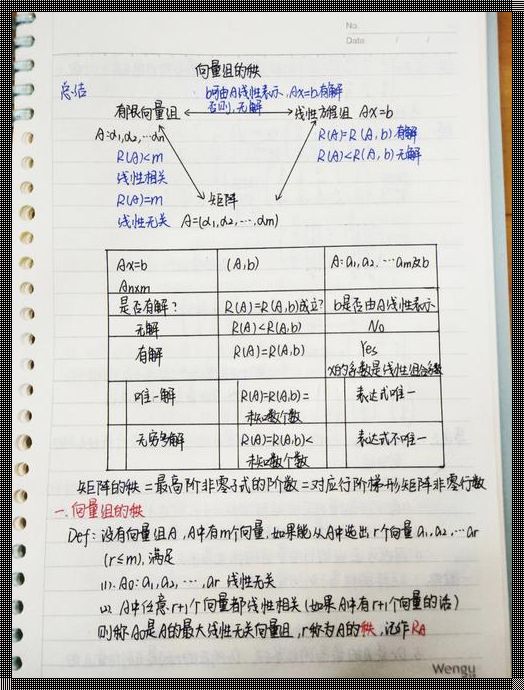 No.
Date / /
向量组的秩
总结
b可由A线性表示, Ax=b有解
否则, 无解
有限向量组
线性方程组 Ax=b
A:α1,α2,…αn
R(A)=R(A,b)有解
R(A)<m
R(A)<R(A,b)无解
线性相关
R(A)=m
矩阵
线性无关
A=(α1,α2,…,αm)
Ax=b (A,b) A:a1,a2,…am及b
An×m
是否有解? R(A)=R(A,b)成立? b是否由A线性表示
无解 R(A)<R(A,b) No
有解 R(A)=R(A,b) Yes
x的系数是线性组合系数
唯一解 R(A)=R(A,b)= 表达式唯一
未知数个数
无穷多解 R(A)=R(A,b)< 表达式不唯一
未知数个数
矩阵的秩=最高阶非零子式的阶数=对应行阶梯形矩阵非零行数
一.向量组的秩
Def: 设有向量组A, A中有m个向量, 如果能从A中选出r个向量a1,a2,…ar
(r≤m), 满足
(1). A0: a1,a2,…,ar 线性无关
(2) A中任意r+1个向量都线性相关(如果A中有r+1个向量的话)
则称A0是A的最大线性无关向量组, r称为A的秩, 记作RA
Wengu